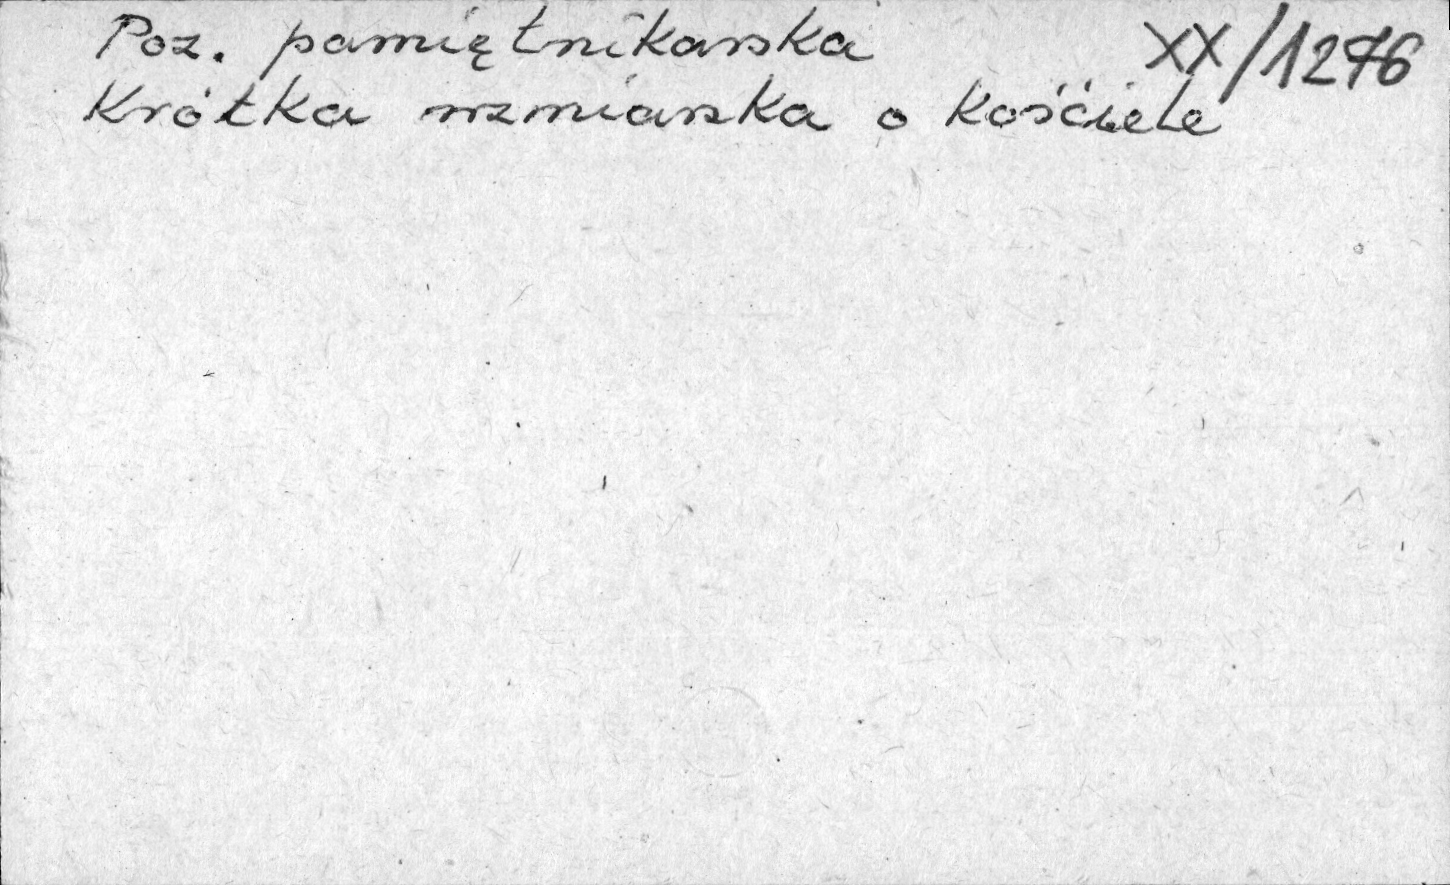 Poz. pamiętnikarska XX/1276
Krótka wzmianka o kościele